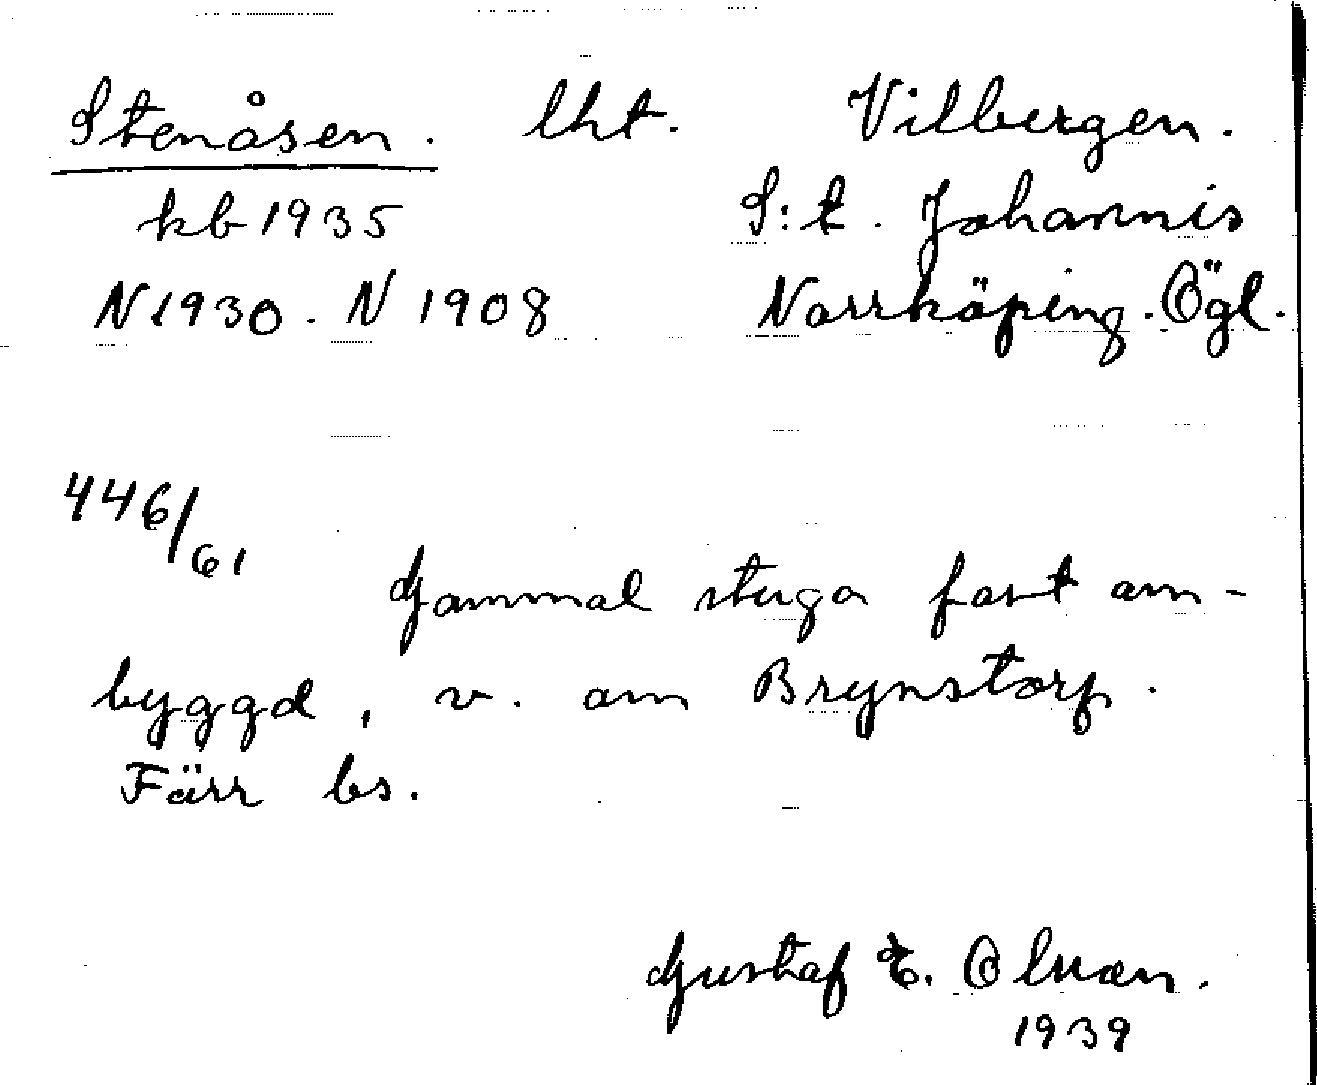 Stenåsen. lht. Vilbergen.
kb 1935 S:t. Johannis
N 1930. N 1908 Norrköping. Ögl.
446/61
Gammal stuga fast om-
byggd, v. om Brynstorp.
Förr bs.
Gustaf E.
1939